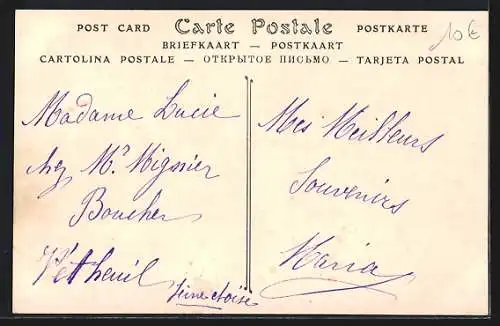 POST CARD Carte Postale POSTKARTE
BRIEFKAART — POSTKAART
CARTOLINA POSTALE — ОТКРЫТОЕ ПИСЬМО — TARJETA POSTAL
10€
Madame Lucie
chez Mr Mignier
Boucher
Vétheuil
Seine et oise
Mes Meilleurs
Souvenirs
Maria